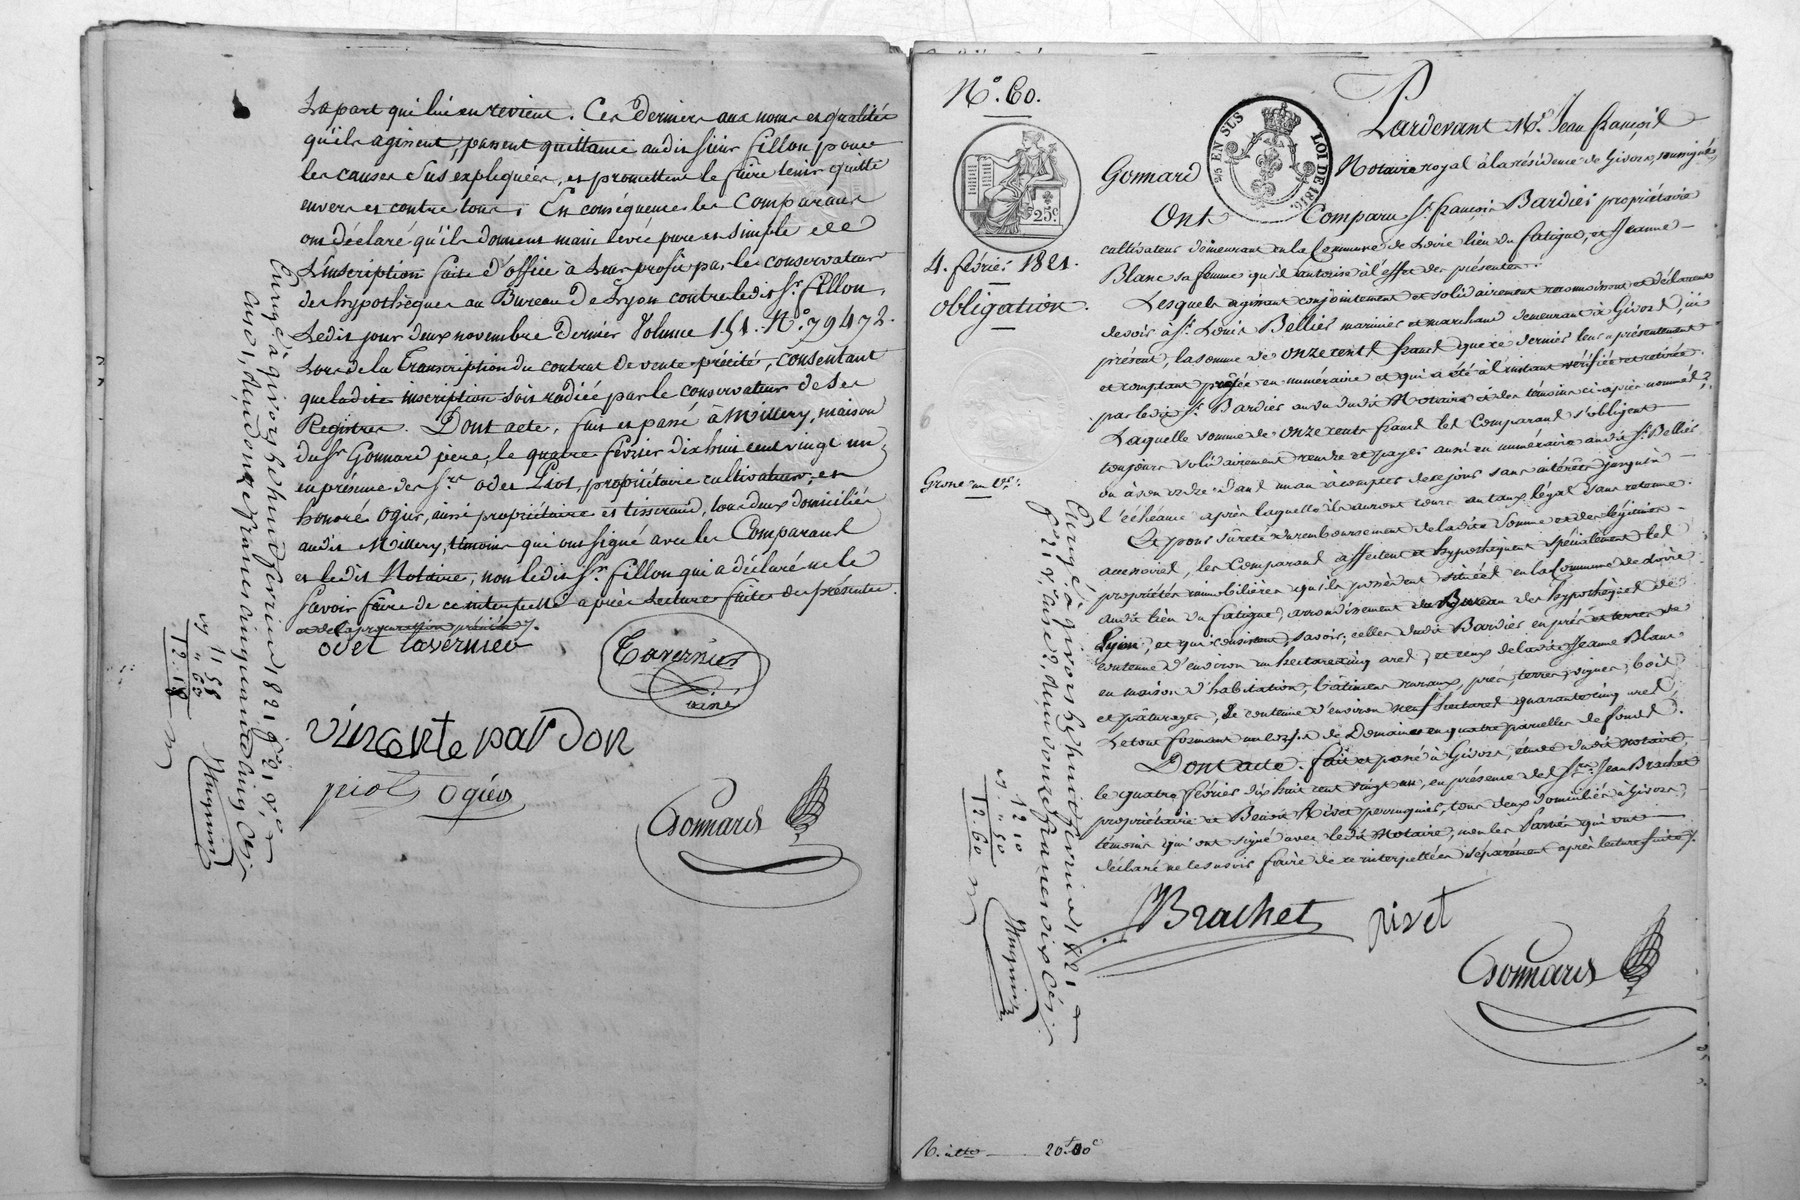 La part qui lui en revient. Ces derniers aux noms et qualités
qu'ils agissent, passent quittance audit sieur fillon pour
les causes Sus expliquées, et promettent le faire tenir quitte
envers et contre tous. En conséquence les Comparans
ont déclaré qu'ils donnent main levée pure et simple de
L'inscription faite d'office à Leur profit par le conservateur
des hypothèques au Bureau De Lyon contre ledit Sr. fillon,
Ledit jour deux novembre dernier Volume 151. No. 79472.
Lors de la Transcription du contrat de vente précité, consentant
que ladite inscription soit radiée par le conservateur de ses
Registres. Dont acte, fait et passé à Millery, maison
du Sr Gonnard père, le quatre février dix huit cent vingt un,
en présence des Srs. odet Piot, propriétaire cultivateur, et
honoré Ogier, aussi propriétaire et tisserand, tous deux domiciliés
audit Millery, témoins qui ont signé avec les Comparans
et ledit Notaire, non ledit Sr. fillon qui a déclaré ne le
savoir faire de ce interpellé après Lecture faite des présentes
odet tavernier
Tavernier
ainé
vincente pardon
piot ogier
Gonnard
Enregé à givors le huit fevrier 1821
onze francs cinquante cinq
11 55
" 60
12.18
No. 60.
25 EN SUS
LOI DE 1816.
25c.
4. février 1821.
Obligation.
Grosse
Pardevant Me. Jean françois
Gonnard Notaire royal à la résidence de Givors, soussignés
Ont Comparu Sr. françois Bardies propriétaire
cultivateur demeurant en la Commune de Loire lieu du fatigue, et Jeanne
Blanc sa femme qu'il autorise à l'effet des présentes.
Lesquels agissant conjointement et solidairement reconnoissent et déclarent
devoir à Sr. Louis Bellies marinier et marchand demeurant à Givors, ici
présent, la somme de onze cents francs que ce dernier leur a présentement
et comptant prêtée en numéraire et qui a été à l'instant vérifiée et retirée
par ledit Sr. Bardies au vu dudit Notaire et des témoins ci-après nommés
Laquelle somme de onze cents francs les Comparans s'obligent
toujours solidairement rendre et payer aussi en numéraire audit Sr. Bellies
ou à son ordre dans un an à compter de ce jour sans intérêts jusqu'à
l'échéance après laquelle ils auront cours au taux légal sans retenue.
Et pour sûreté du remboursement de ladite Somme et des légitimes
accessoires, les Comparans affectent et hypothèquent spécialement les
propriétés immobilières qu'ils possèdent situées en la Commune de Loire
audit lieu du fatigue, arrondissement du Bureau des hypothèques de
Lyon, et qui consistent, savoir; celles dudit Bardies en prés et terres de
contenue d'environ un hectare cinq ares, et ceux de ladite Jeanne Blanc
en maison d'habitation, bâtimens ruraux, prés, terres, vignes, bois
et pâturages, de contenue d'environ neuf hectares quarante cinq ares
Le tout formant un corps de Domaine en quatre parcelles de fonds.
Dont acte. fait et passé à Givors, étude dudit notaire,
le quatre février dix huit cent vingt un, en présence des Srs. Jean Brachet
propriétaire et Benoit Rivet perruquier, tous deux domiciliés à Givors,
témoins qui ont signé avec ledit Notaire, non les parties qui ont
déclaré ne le savoir faire de ce interpellées séparément après lecture faite
Brachet
rivet
Gonnard
Enregé à givors le huit fevrier 1821
onze francs dix
12 10
" 50
12.60
20f.00c